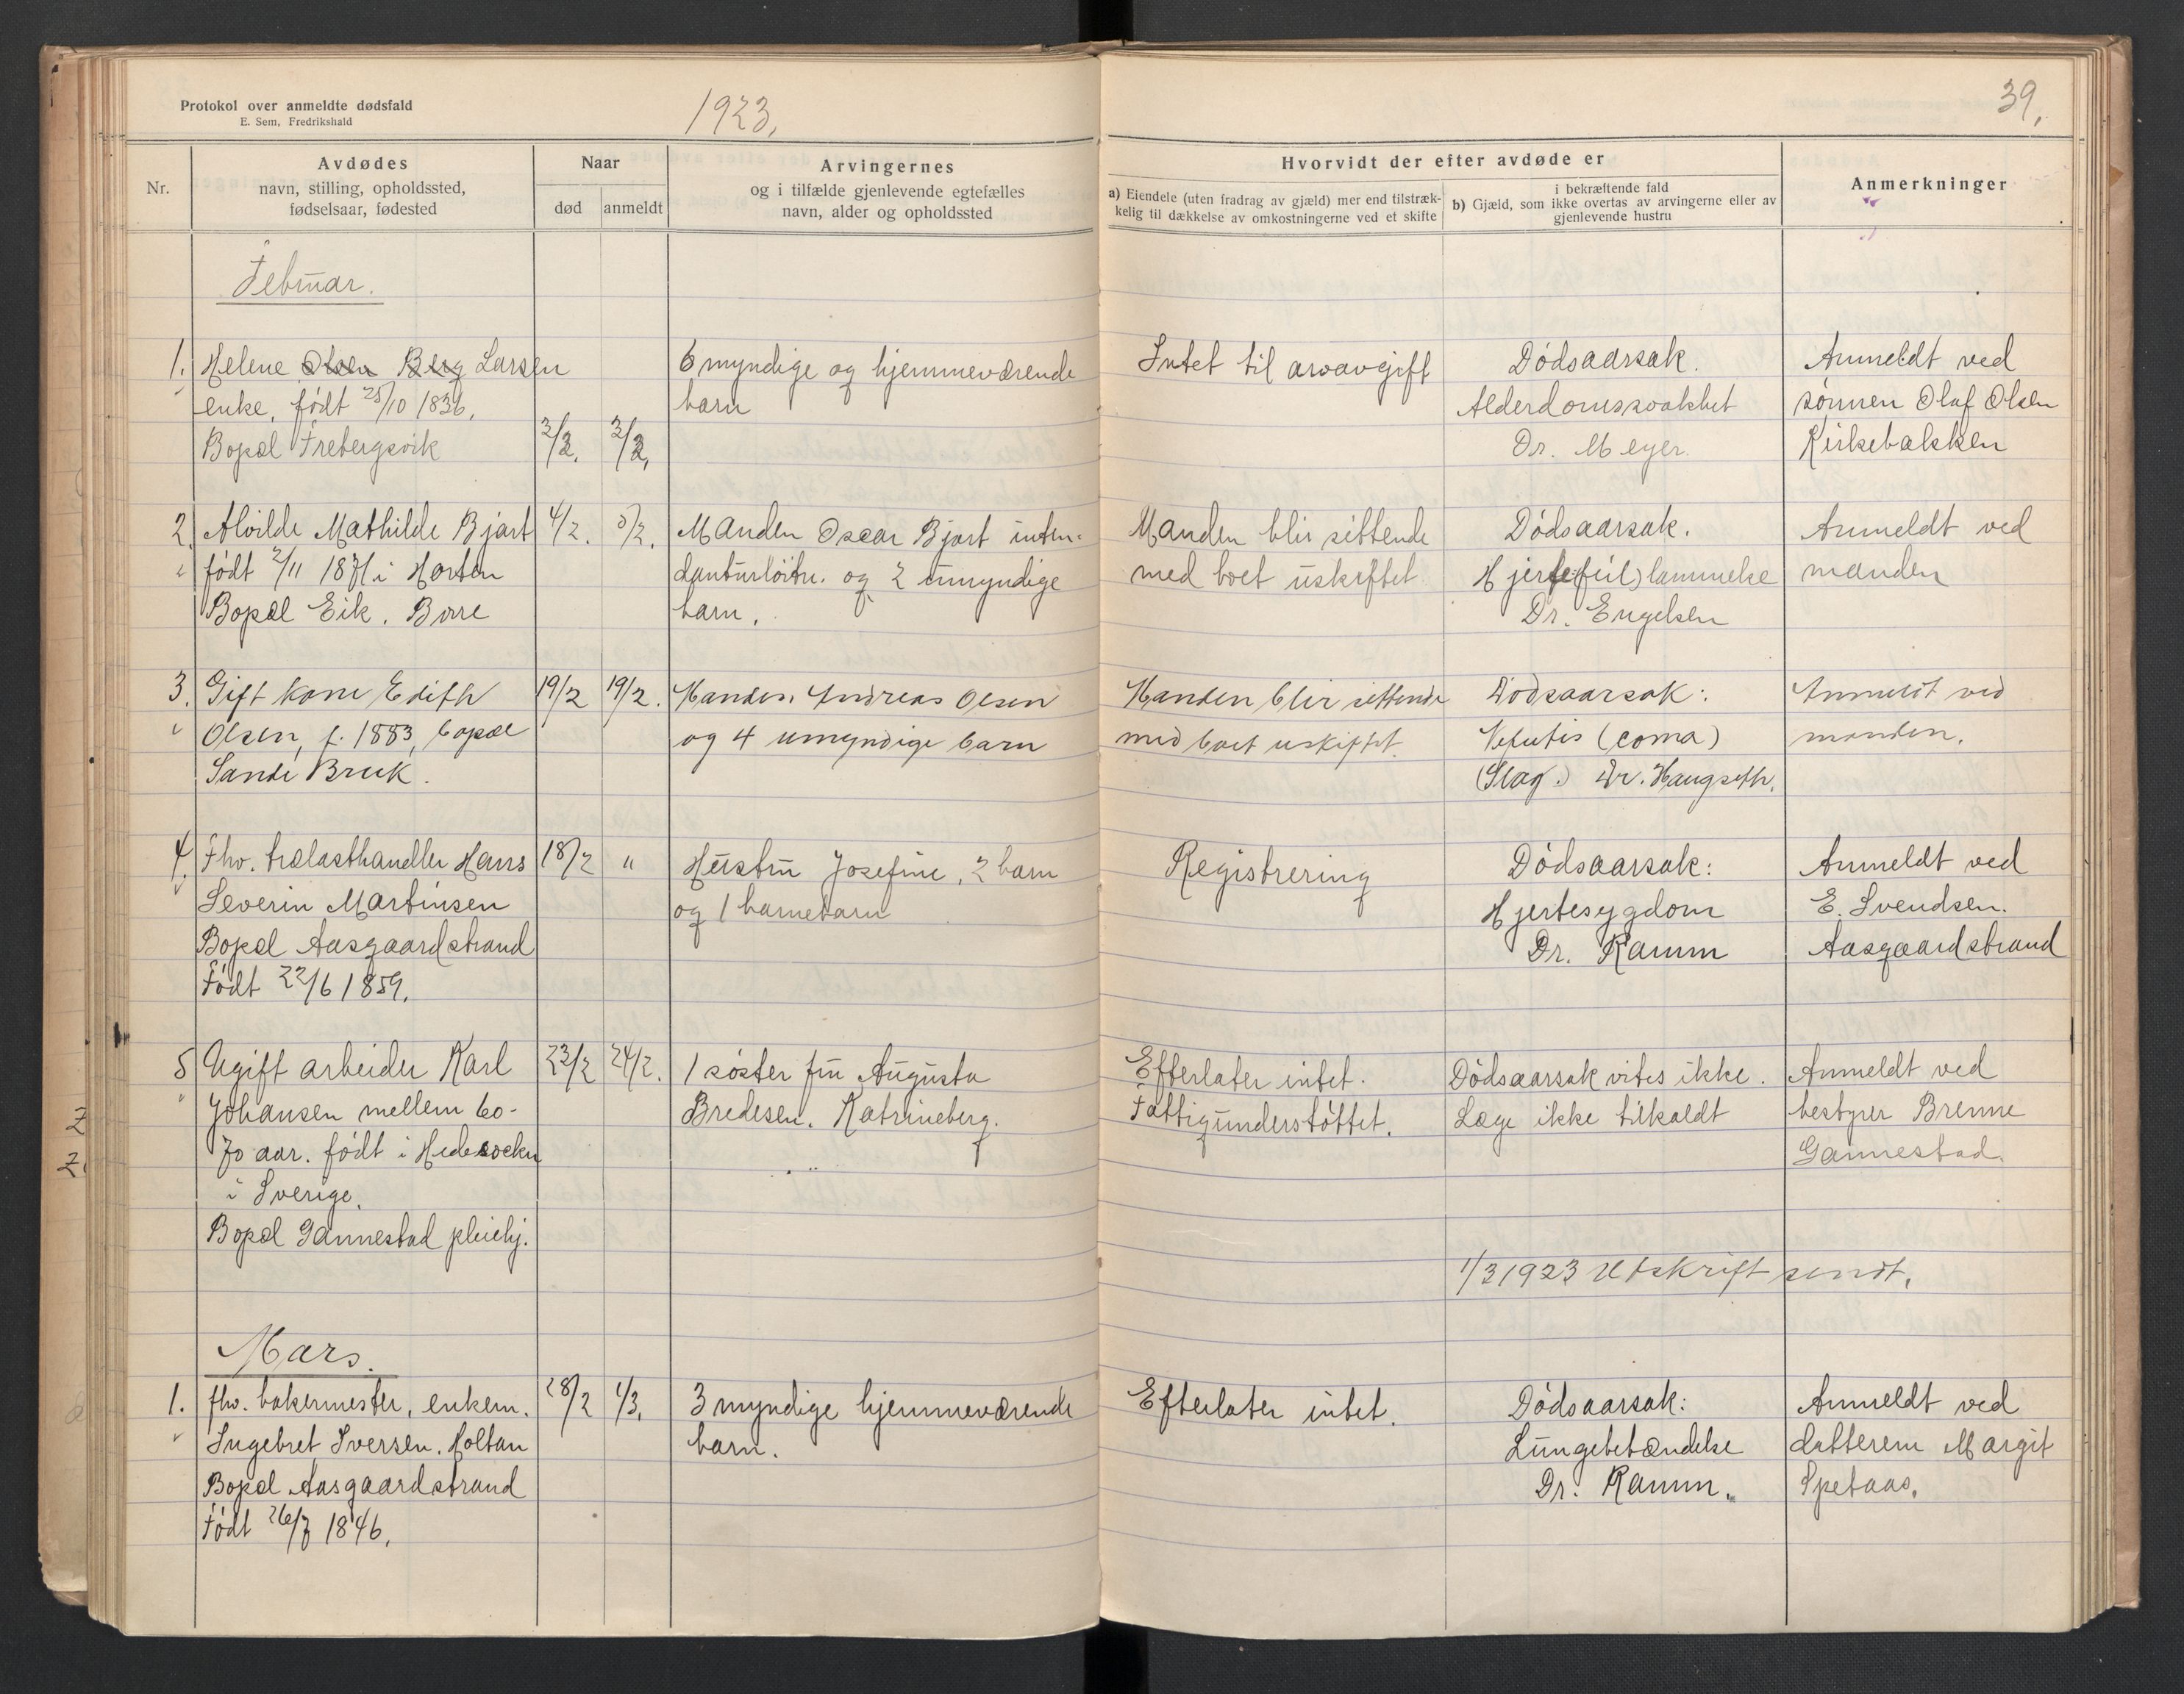 Protokol over anmeldte dødsfald
E. Sem, Fredrikshald
1923,
39,
Nr.
Avdødes
navn, stilling, opholdssted,
fødselsaar, fødested
Naar
død
anmeldt
Arvingernes
og i tilfælde gjenlevende egtefælles
navn, alder og opholdssted
Hvorvidt der efter avdøde er
a) Eiendele (uten fradrag av gjæld) mer end tilstræk-
kelig til dækkelse av omkostningerne ved et skifte
i bekræftende fald
b) Gjæld, som ikke overtas av arvingerne eller av
gjenlevende hustru
Anmerkninger
Februar.
1. Helene Olsen Berg Larsen
enke, født 25/10 1836,
Bopæl Frebergsvik
2/2. 3/2,
6 myndige og hjemmeværende
barn
Intet til arvavgift
Dødsaarsak.
Alderdomssvakhet
Dr. Meyer.
Anmeldt ved
sønnen Olaf Olsen
Kirkebakken
2. Alvilde Mathilde Bjart
født 2/11 1871 i Horten
Bopæl Eik. Borre
4/2. 5/2.
Manden Oscar Bjart inten-
danturløitn. og 2 umyndige
barn.
Manden blir sittende
med boet uskiftet
Dødsaarsak.
Hjerte(feil)lammelse
Dr. Engelsen
Anmeldt ved
manden
3. Gift kone Edith
Olsen, f. 1883, bopæl
Sande Bruk.
19/2 19/2.
Manden, Andreas Olsen
og 4 umyndige barn
Manden blir sittende
med boet uskiftet.
Dødsaarsak:
Nefritis (coma)
(Slag.) Dr. Haugseth.
Anmeldt ved
manden.
4. Fhv. trælasthandler Hans
Severin Martinsen
Bopæl Aasgaardstrand
Født 22/6 1859.
18/2 "
Hustru Josefine, 2 barn
og 1 barnebarn
Registrering
Dødsaarsak:
Hjertesygdom
Dr. Ramm
Anmeldt ved
E. Svendsen.
Aasgaardstrand
5 Ugift arbeider Karl
Johansen mellem 60-
70 aar. født i
i Sverige.
Bopæl Gannestad pleiehj.
22/2 24/2.
1 søster fru Augusta
Bredesen. Katrineberg.
Efterlater intet.
Fattigunderstøttet.
Dødsaarsak vites ikke.
Læge ikke tilkaldt
Anmeldt ved
bestyrer Brenne
Gannestad.
1/3 1923 Utskrift sendt.
Mars.
1. fhv. bakermester, enkem.
Ingebret Iversen. Holtan
Bopæl Aasgaardstrand
Født 26/7 1846.
28/2 1/3.
3 myndige hjemmeværende
barn.
Efterlater intet.
Dødsaarsak:
Lungebetændelse
Dr. Ramm.
Anmeldt ved
datteren Margit
Spetaas.